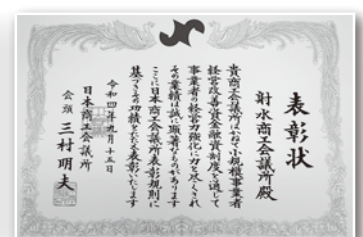 表彰状
射水商工会議所殿
貴商工会議所はかねて小規模事業者
経営改善資金融資制度を通じて
事業者の経営力強化に力を尽くされ
その業績は誠に顕著なものがあります
ここに日本商工会議所表彰規則に
基づきその功績をたたえ表彰いたします
令和四年九月十五日
日本商工会議所
会頭 三村明夫